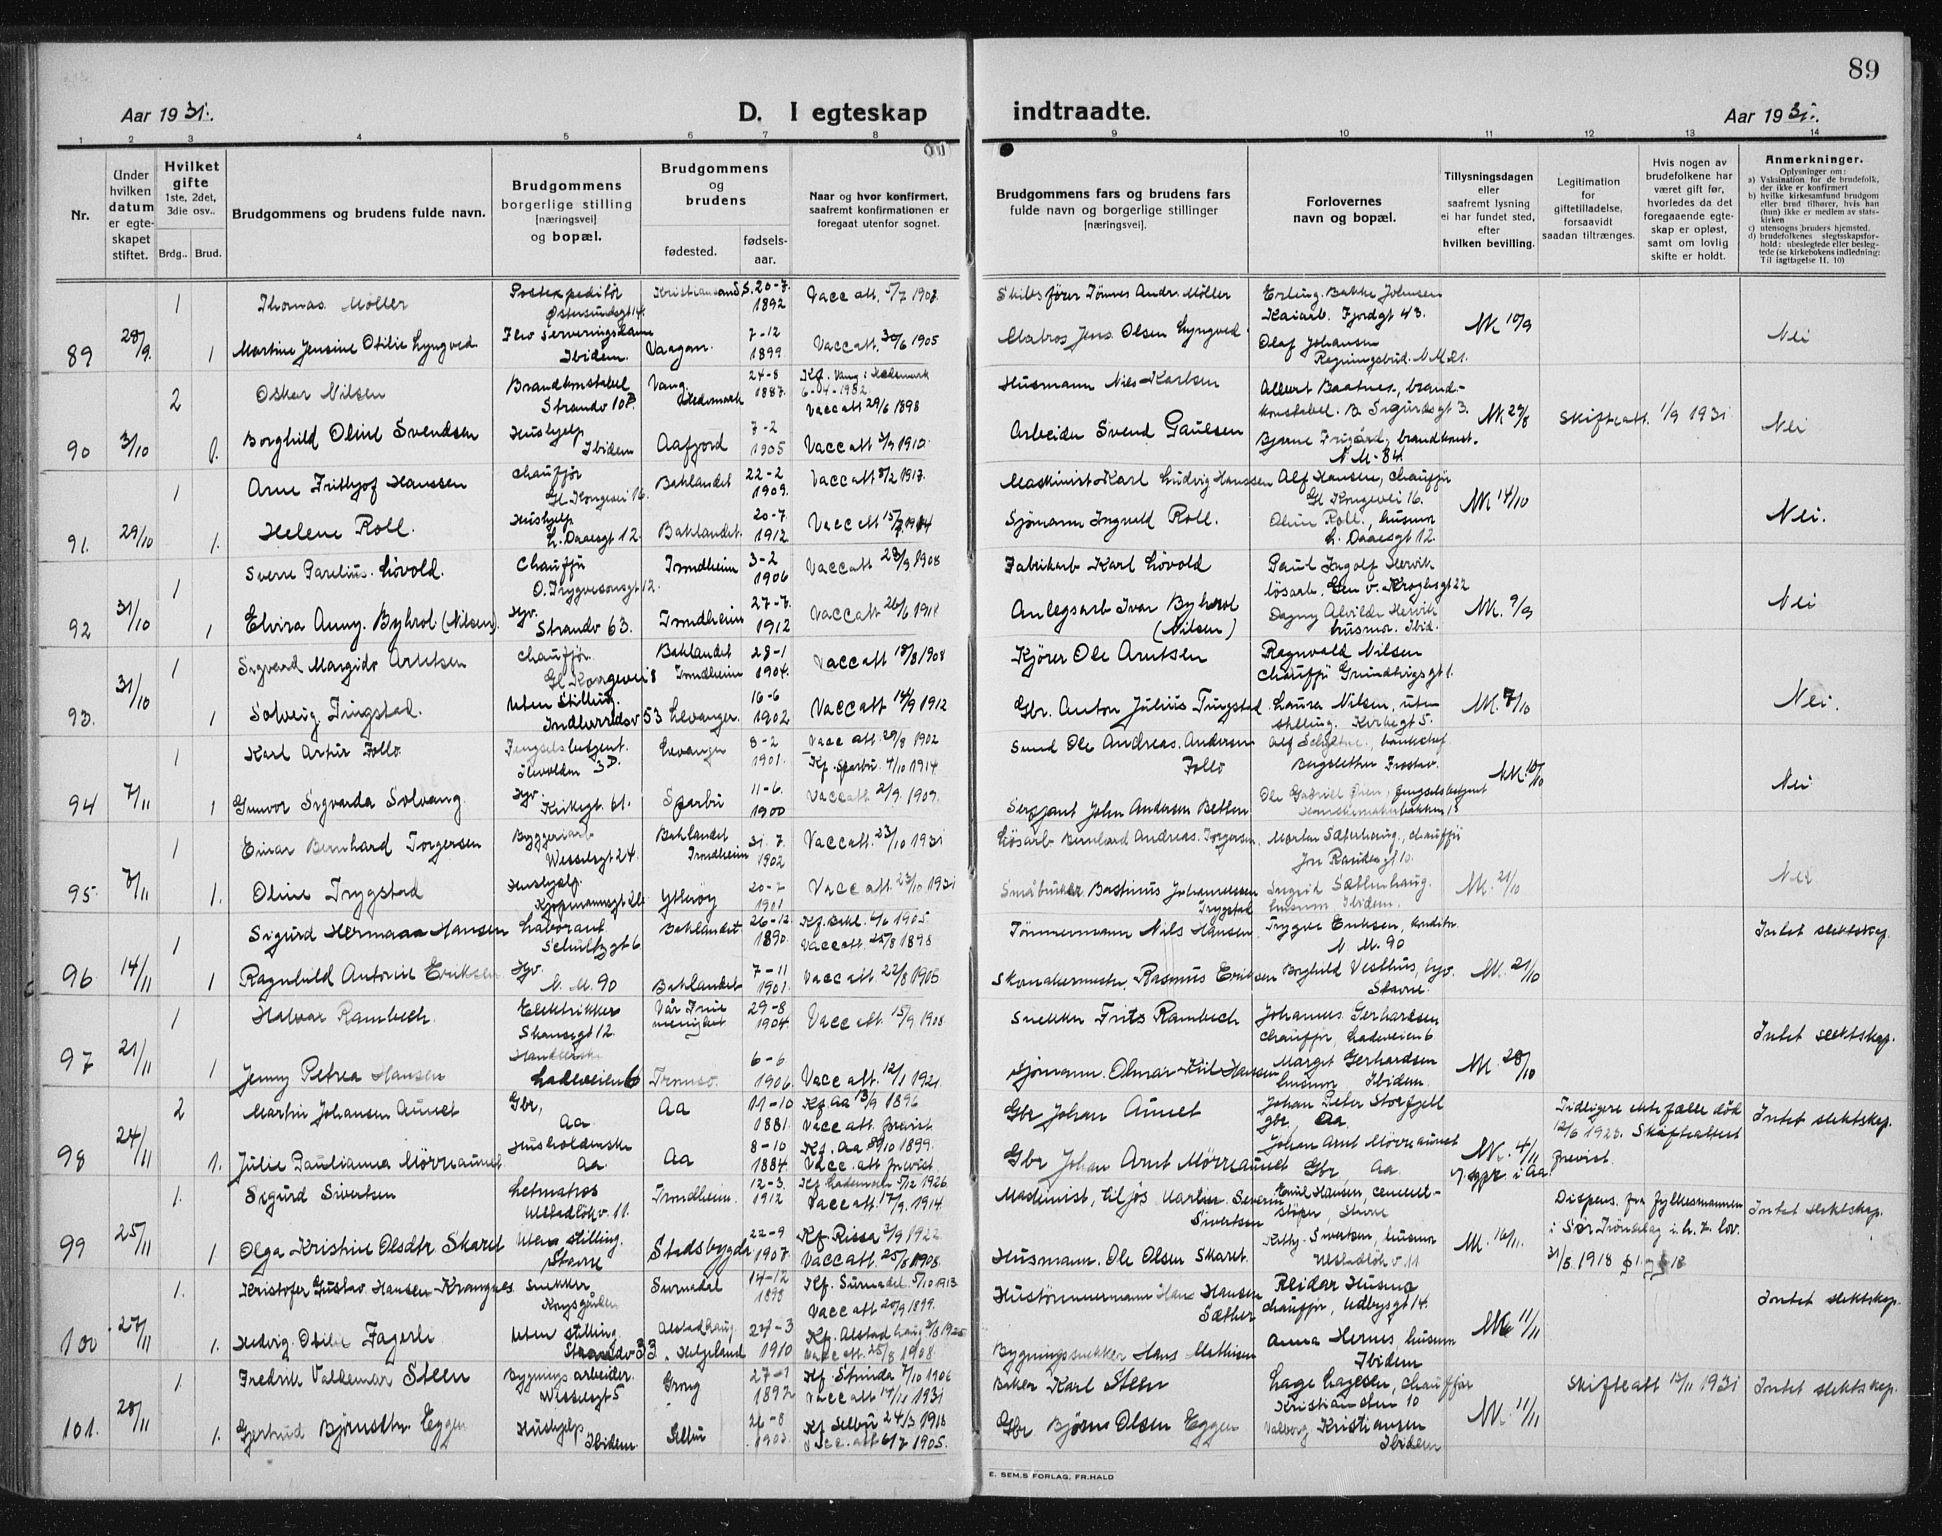 89
Aar 1931.
D. I egteskap indtraadte.
Aar 1931.
1 2 3 4 5 6 7 8 9 10 11 12 13 14
Nr.
Under hvilken datum er egteskapet stiftet.
Hvilket gifte 1ste, 2det, 3die osv..
Brdg.. Brud.
Brudgommens og brudens fulde navn.
Brudgommens borgerlige stilling [næringsvei] og bopæl.
Brudgommens og brudens
fødested.
fødsels-aar.
Naar og hvor konfirmert, saafremt konfirmationen er foregaat utenfor sognet.
Brudgommens fars og brudens fars fulde navn og borgerlige stillinger [næringsvei].
Forlovernes navn og bopæl.
Tillysningsdagen eller saafremt lysning ei har fundet sted, efter hvilken bevilling.
Legitimation for giftetilladelse, forsaavidt saadan tiltrænges.
Hvis nogen av brudefolkene har været gift før, hvorledes da det foregaaende egteskap er opløst, samt om lovlig skifte er holdt.
Anmerkninger.
Oplysninger om:
a) Vaksination for de brudefolk, der ikke er konfirmert
b) hvilke kirkesamfund brudgom eller brud tilhører, hvis han (hun) ikke er medlem av statskirken
c) utensogns bruders hjemsted.
d) brudefolkenes slegtsskapsforhold; ubeslegtede eller beslegtede (se kirkebokens indledning: Til iagttagelse II. 10)
1 Thomas Møller Postekspeditør Østersundsgt 14. Kristiansand S. 20-7 1892 Vacc att. 5/7 1902 Skibsfører Tønnes Andr. Møller Erling Bakke Johnsen Kaiarb. Fjordgt 43.
89 28/9. 1 Martine Jensine Otilie Lyngved Ibidem Vaagan. 7-12 1899 Vacc att. 30/6 1905 Matros Jens Olsen Lyngved Olaf Johansen NK 10/9 Nei
2 Oskar Nilsen Brandkonstabel Strandv 10 P. Vang Hedemark 24-8 1887. Kf. Vang i Hedemark Vacc att 29/6 1898 Husmann Nils Karlsen Albert Baatnes, brandkonstabel. B. Sigurdsgt 3.
90 3/10 1. Borghild Oline Svendsen Hushjelp Ibidem Aafjord 7-2 1905 Vacc att 3/9 1910. Arbeider Svend Paulsen Bjarne Frigård, brandkonst. N.M. 84. NK 29/8 Skifteatt. 1/9 1931 Nei
1 Arne Frithjof Hanssen Chauffør Gl. Kongevei 16. Baklandet 22-2 1909. Vacc att 8/2 1917. Maskinist Karl Ludvig Hanssen Alf Hansen, Chauffør Gl. Kongevei 16.
91. 29/10 1. Helene Roll. Hushjelp L. Daaesgt 12. Baklandet. 20-7 1912. Vacc att Sjømann Ingvald Roll. Oline Roll, husmor L. Daaesgt 12 NK 14/10 Nei.
1 Sverre Parelius Løvold. Chauffør O. Trygvesonsgt 12. Trondheim 3-2 1906 Vacc att 23/9 1908 Fabrikarb Karl Løvold Paul Ingolf Hervik løsarb. Gen v. Kroghsgt 22
92 31/10 1 Elvira Anny Byhrol (Nilsen). Hgv. Strandv 63. Trondheim 27-7 1912 Vacc att 26/6 1918 Anlegsarb Ivar Byhrol (Nilsen) Dagny Alvilde Hervik husmor. Ibid. NK. 9/9 Nei
1 Sigvard Margido Arntsen Chauffør. Gl. Kongevei 8 Baklandet Trondheim 28-1 1904. Vacc att 18/8 1908 Kjører Ole Arntsen Ragnvald Nilsen Chauffør Grundtvigsgt 1.
93. 31/10 1 Solveig Tingstad. Uten Stilling. Indherredsv 53 Levanger. 16-6 1902 Vacc att 14/9 1912 Gbr. Anton Julius Tingstad Laura Nilsen, uten stilling. Kirkegt 5. NK. 7/10 Nei.
1 Karl Artur Follo Fengselsbetjent. Ilevolden 3 D. Levanger 8-2 1901. Vacc att. 29/8 1902 Kf. Sparbu. 4/10 1914. Smed Ole Andreas Andersen Follo
94 7/11 1 Gunvor Sigvarda Solvang. Hgv. Kirkegt. 61. Sparbu 11-6. 1900 Vacc att. 2/9. 1909. Sersjant John Andersen Ole Gabriel Øien, fengselsbetjent NK. 10/10 Nei
1 Einar Bernhard Torgersen Byggeriarb Wesselsgt 24. Baklandet Trondheim 31-7. 1902 Vacc att. 23/10 1931 Løsarb Bernhard Andreas Torgersen, Morten Sæterhaug, chauffør
95. 7/11 1. Oline Trygstad Hushjelp. Kjøpmannsgt Ytterøy 20-2 1901 Vacc att 23/10 1931 Småbruker Bastinus Johannessen Trygstad Ingrid Sæterhaug. husmor Ibidem. NK. 21/10 Nei
1 Sigurd Hermann Hansen Laborant Schultzgt 6 Baklandet 26-12 1890. Kf. Bakl. 4/6 1905. Vacc att. 25/8 1898 Tømmermann Nils Hansen Trygve Eriksen, konditor N. M. 90 Intet slektskap.
96 14/11 1 Ragnhild Antonie Eriksen Hgv. N. M. 90 Baklandet 7-11 1901. Vacc att 22/8 1905 Skomakermester Rasmus Eriksen Borghild Vesthus, hgv. Stavne. NK. 21/10
1 Halvar Rambech. Elektrikker Skansegt 12. Vår Frue menighet 29-8 1904. Vacc att. 15/9 1908. Snekker Fritz Rambech Johannes Gerhardsen chauffør, Ladeveien 6 Intet slektskap.
97 21/11 1 Jenny Petrea Hansen Ladeveien 6 Tromsø. 6-6 1906. Vacc att. 12/1 1921. Sjømann. Olmar Kiil Hansen Margit Gerhardsen husmor Ibidem. NK. 28/10
2 Martin Johansen Aunet Gbr, Aa Aa 11-10 1881. Kf. Aa 13/9 1896 Vacc att. forevist Gbr Johan Aunet Johan Peter Storfjell gbr, Aa Tidligere ektefælle død 12/6 1923. Skifteattest forevist. Intet slektskap.
98 24/11 1. Julie Paulianna Mørreaunet Husholderske Aa. Aa 8-10 1884 Kf. Aa 8/10 1899. Vacc. att forevist. Gbr Johan Arnt Mørreaunet Johan Arnt Mørreaunet Gbr Aa. NK. 4/11 i Aa
1. Sigurd Sivertsen Letmatros Ulstadløkv. 11. Trondheim. 12-3. 1912 Kf. Lademoen 5/12 1926. Vacc att. 17/9. 1914. Maskinist, Martin Severin Sivertsen Emil Hansen, cementstøper Stavne Dispens. fra fylkesmannen i Sør Trøndelag i. h. t. lov. 31/5 1918 Intet slektskap.
99 25/11 1 Olga Kristine Olsdtr Skaret Uten stilling. Stavne Stadsbygda 22-9 1907. Kf. Rissa 3/9 1922 Vacc att. 25/8 1908. Husmann. Ole Olsen Skaret. Sivertsen, husmor Ulstadløkv. 11 NK. 16/11.
1. Kristofer Gustav Hansen Krangnes Snekker Kongsgården Surnadal 14-12 1898 Kf. Surnadal. 5/10 1913 Vacc att 20/9 1899. Hustømmermann Hans Hansen Sæther Reidar Husmo chauffør, Udbysgt 14. Intet slektskap.
100 27/11 1. Hedvig Otilie Fagerli Uten stilling. Strandv 33 Alstadhaug, Helgeland 24-3 1910 Kf. Alstadhaug 1925 Vacc att. 25/8 1908. Bygningssnekker Hans Mathisen Anna Hernes, husmor Ibidem NK 11/11
1. Fredrik Valdemar Steen Bygnings arbeider. Wesselsgt 5 Grong 27-1 1892 Kf. Strinda 7/10 1906 Vacc att 17/11 1931 Baker Karl Steen Lage Lagesen, chauffør Kristianstein 10 Skifteatt 12/11 1931 Intet slektskap.
101. 28/11 1. Gertrud Bjørnsdtr Eggen Hushjelp Ibidem Selbu 26-8 1903. Kf Selbu 24/3 1918 Vacc. att 6/7 1905. Gbr Bjørn Olsen Eggen Valborg Kristiansen Ibidem NK. 11/11
E. SEM.S FORLAG, FR.HALD